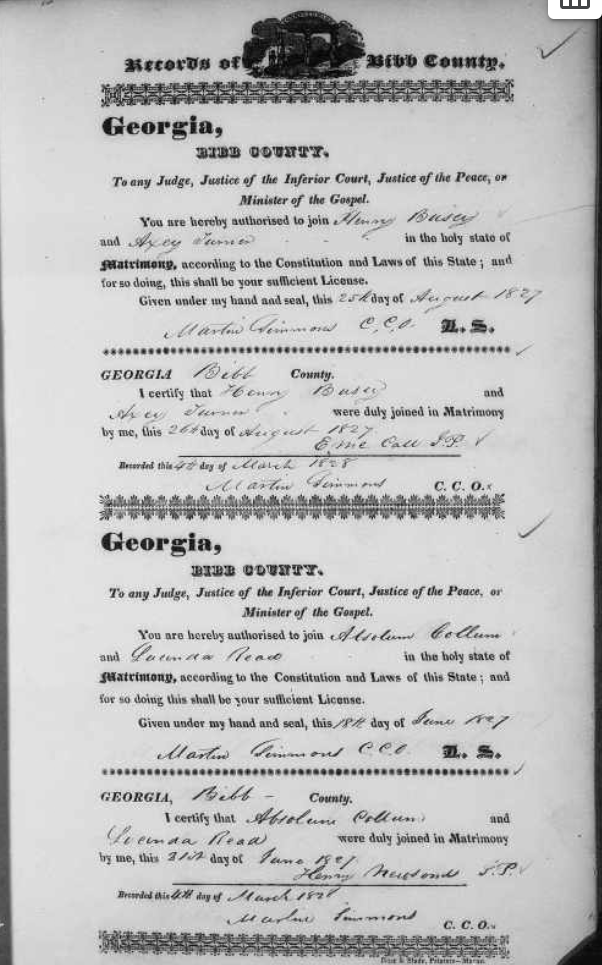 Records of Bibb County.
Georgia,
BIBB COUNTY.
To any Judge, Justice of the Inferior Court, Justice of the Peace, or
Minister of the Gospel.
You are hereby authorised to join Henry Busey
and Axey Turner in the holy state of
Matrimony, according to the Constitution and Laws of this State; and
for so doing, this shall be your sufficient License.
Given under my hand and seal, this 25th day of August 1827
Martin Simmons C.C.O. L. S.
GEORGIA Bibb County.
I certify that Henry Busey and
Axey Turner were duly joined in Matrimony
by me, this 26th day of August 1827
J.P.
Recorded this 4th day of March 1828
Martin Simmons C. C. O.
Georgia,
BIBB COUNTY.
To any Judge, Justice of the Inferior Court, Justice of the Peace, or
Minister of the Gospel.
You are hereby authorised to join Absolum Collum
and Lucinda Read in the holy state of
Matrimony, according to the Constitution and Laws of this State; and
for so doing this shall be your sufficient License.
Given under my hand and seal, this 18th day of June 1827
Martin Simmons C.C.O. L. S.
GEORGIA, Bibb County.
I certify that Absolum Collum and
Lucinda Read were duly joined in Matrimony
by me, this 21st day of June 1827
Henry Newsond J.P.
Recorded this 4th day of March 1828
Martin Simmons
C. C. O.
& Slade, Printers—Macon.